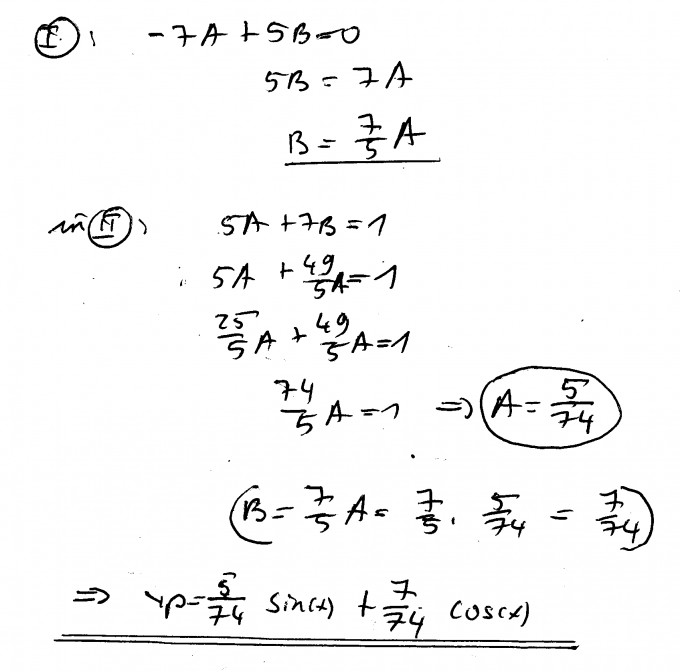 I: -7A + 5B = 0
5B = 7A
B = 7/5 A
in II: 5A + 7B = 1
5A + 49/5 A = 1
25/5 A + 49/5 A = 1
74/5 A = 1 => A = 5/74
(B = 7/5 A = 7/5 · 5/74 = 7/74)
=> yp = 5/74 sin(x) + 7/74 cos(x)